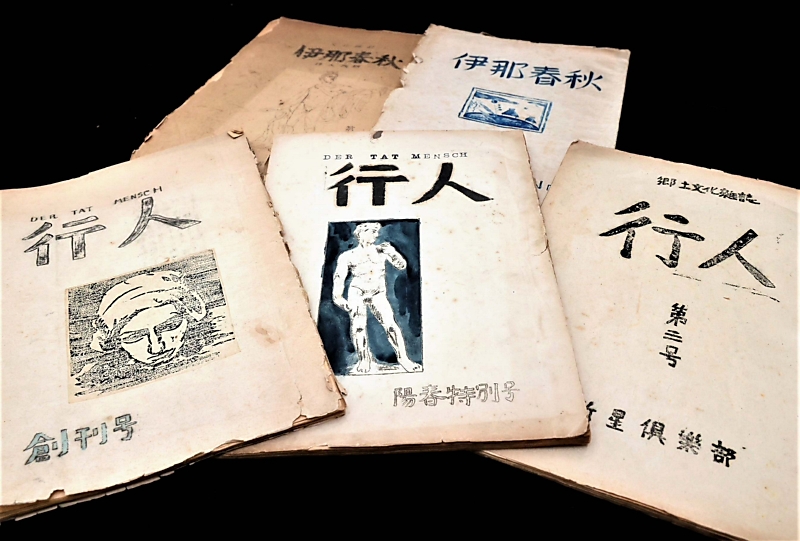 伊那春秋
伊那春秋
DER TAT MENSCH
行人
創刊号
DER TAT MENSCH
行人
陽春特別号
郷土文化雑誌
行人
第三号
星倶樂部